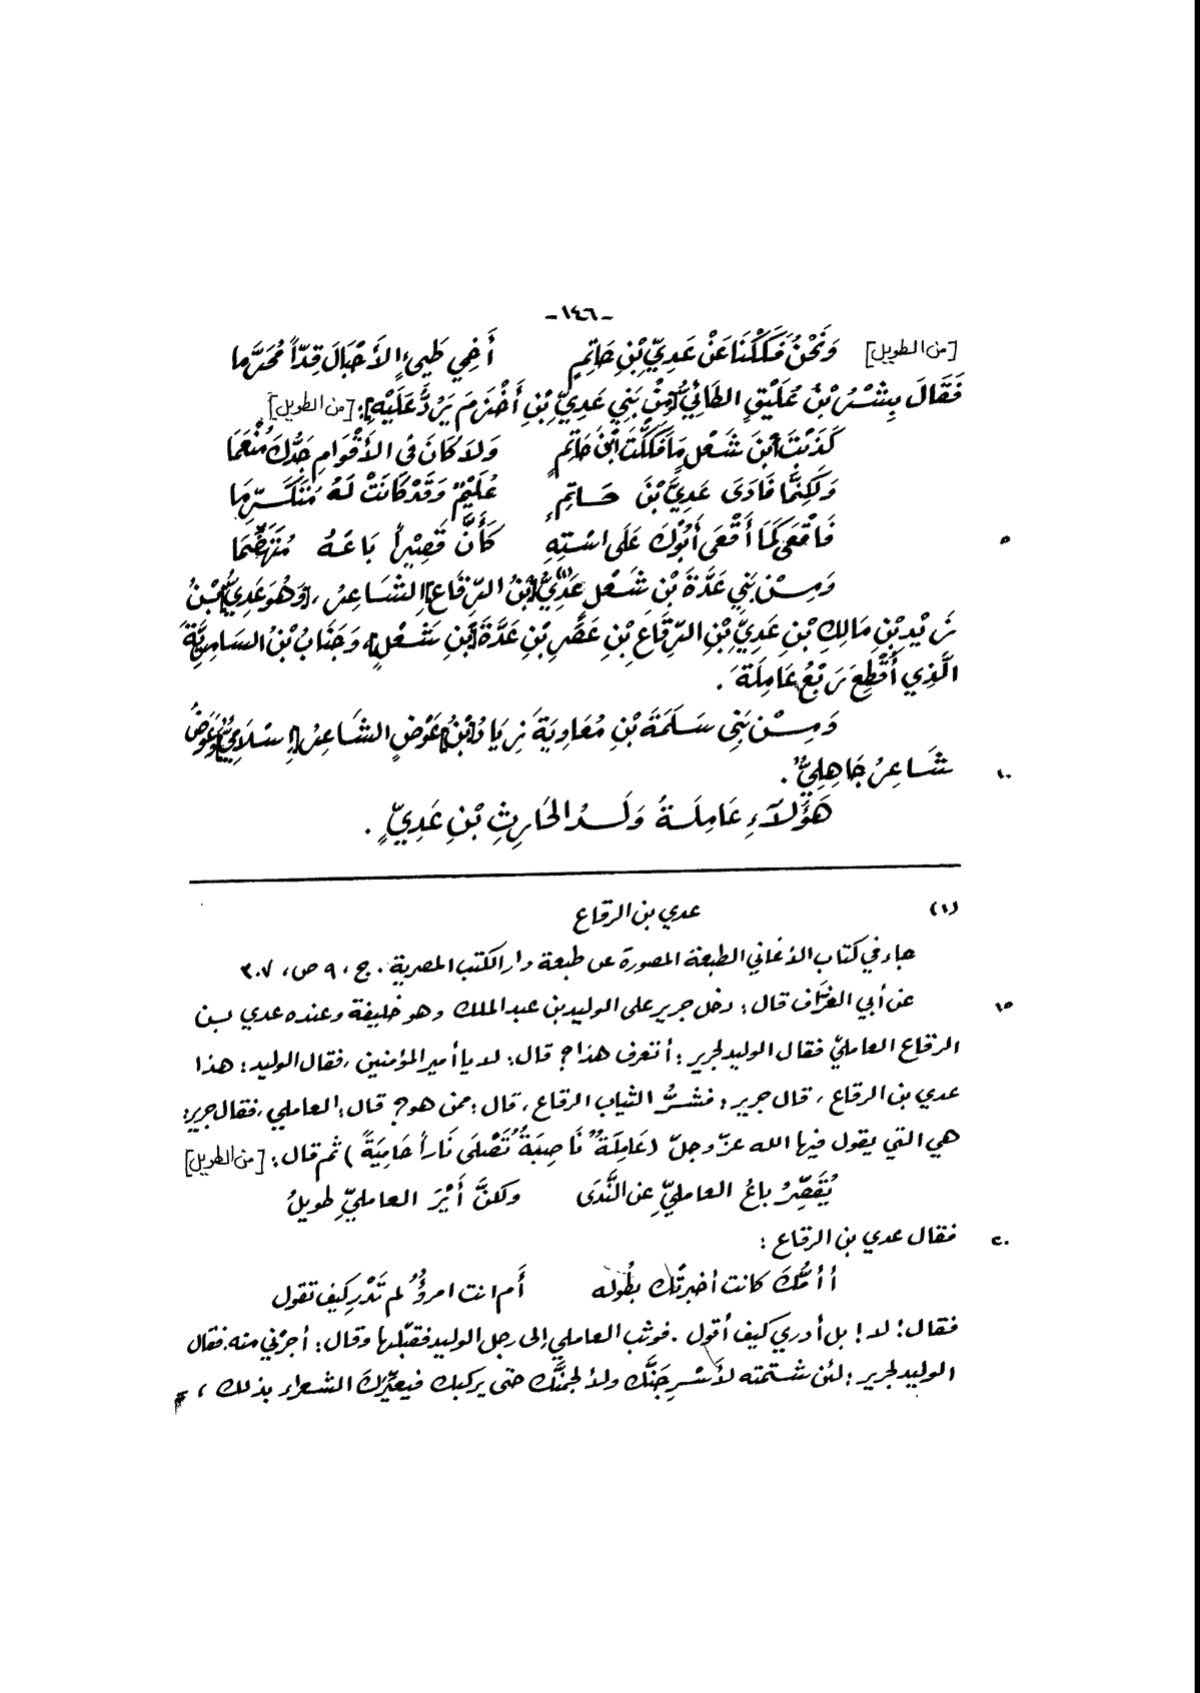 -١٤٦-
[من الطويل] وَنَحْنُ فَكَكْنَا عَنْ عَدِيِّ بْنِ حَاتِمٍ أَخِي طَيِّئِ الأَجْبَالَ قِدّاً مُحَرَّما
فَقَالَ بِشْرُ بْنُ عُلَيْقٍ الطَائِيُّ [مِنْ بَنِي عَدِيِّ بْنِ أَخْزَمَ يَرُدُّ عَلَيْهِ]: [من الطويل]
كَذَبْتَ ابْنَ شَعْلٍ مَا فَكَكْتَ ابْنَ حَاتِمٍ وَلاَ كَانَ فِي الأَقْوَامِ جَدُّكَ مُنْعِمَا
وَلَكِنَّمَا فَادَى عَدِيَّ بْنَ حَاتِمٍ عُلَيْمٌ وَقَدْ كَانَتْ لَهُ مُتَكَرِّمَا
٥ فَاقْعَ كَمَا أَقْعَى أَبُوْكَ عَلَى اسْتِهِ كَأَنَّ قَصِيْراً بَاعُهُ مُتَهَضَّمَا
وَمِنْ بَنِي عَدَّةَ بْنِ شَعْلٍ عَدِيُّ(١) [بْنُ الرِّقَاعِ] الشَاعِرُ، [وَهُوَ عَدِيُّ] بْنُ
زَيْدِ بْنِ مَالِكِ بْنِ عَدِيِّ بْنِ الرِّقَاعِ بْنِ عَصَرِ بْنِ عَدَّةَ [بْنِ شَعْلٍ]، وَجَنَابُ بْنُ السَامِرِيَّةَ
الَّذِي أُقْطِعَ رَبْعُ عَامِلَةَ.
وَمِنْ بَنِي سَلَمَةَ بْنِ مُعَاوِيَةَ زِيَادُ [بْنُ] عَوْضٍ الشَاعِرُ [إِسْلَامِيٌّ] وَعَوْضٌ
١٠ شَاعِرٌ جَاهِلِيٌّ.
هَؤُلاَءِ عَامِلَةُ وَلَدُ الحَارِثِ بْنِ عَدِيٍّ.
(١) عدي بن الرقاع
جاء في كتاب الأغاني الطبعة المصورة عن طبعة دار الكتب المصرية. ج، ٩ ص، ٣٠٧
١٥ عن أبي الغرَّاف قال: دخل جرير على الوليد بن عبد الملك وهو خليفة وعنده عدي بن
الرقاع العامليّ فقال الوليد لجرير: أتعرف هذا؟ قال: لا يا أمير المؤمنين، فقال الوليد: هذا
عدي بن الرقاع، قال جرير: فشرُّ الثياب الرقاع، قال: ممن هو؟ قال: العاملي، فقال جرير:
هي التي يقول فيها الله عزّ وجلّ (عَامِلَةٌ نَاصِبَةٌ تَصْلَى نَاراً حَامِيَةً) ثم قال: [من الطويل]
يُقَصِّرُ باعُ العامليِّ عن النَّدَى ولكنَّ أَيْرَ العامليِّ طويلُ
٢٠ فقال عدي بن الرقاع:
أأُمُّكَ كانت أخبرتْك بطُوله أَم انت امرؤٌ لم تَدْرِ كيف تقول
فقال: لا! بل أدري كيف أقول. فوثب العاملي إلى رجل الوليد فقبَّلها وقال: أجرْني منه. فقال
الوليد لجرير: لئن شتمته لأسْرِجَنَّك ولألجمنَّك حتى يركبك فيعيِّرك الشعراء بذلك،